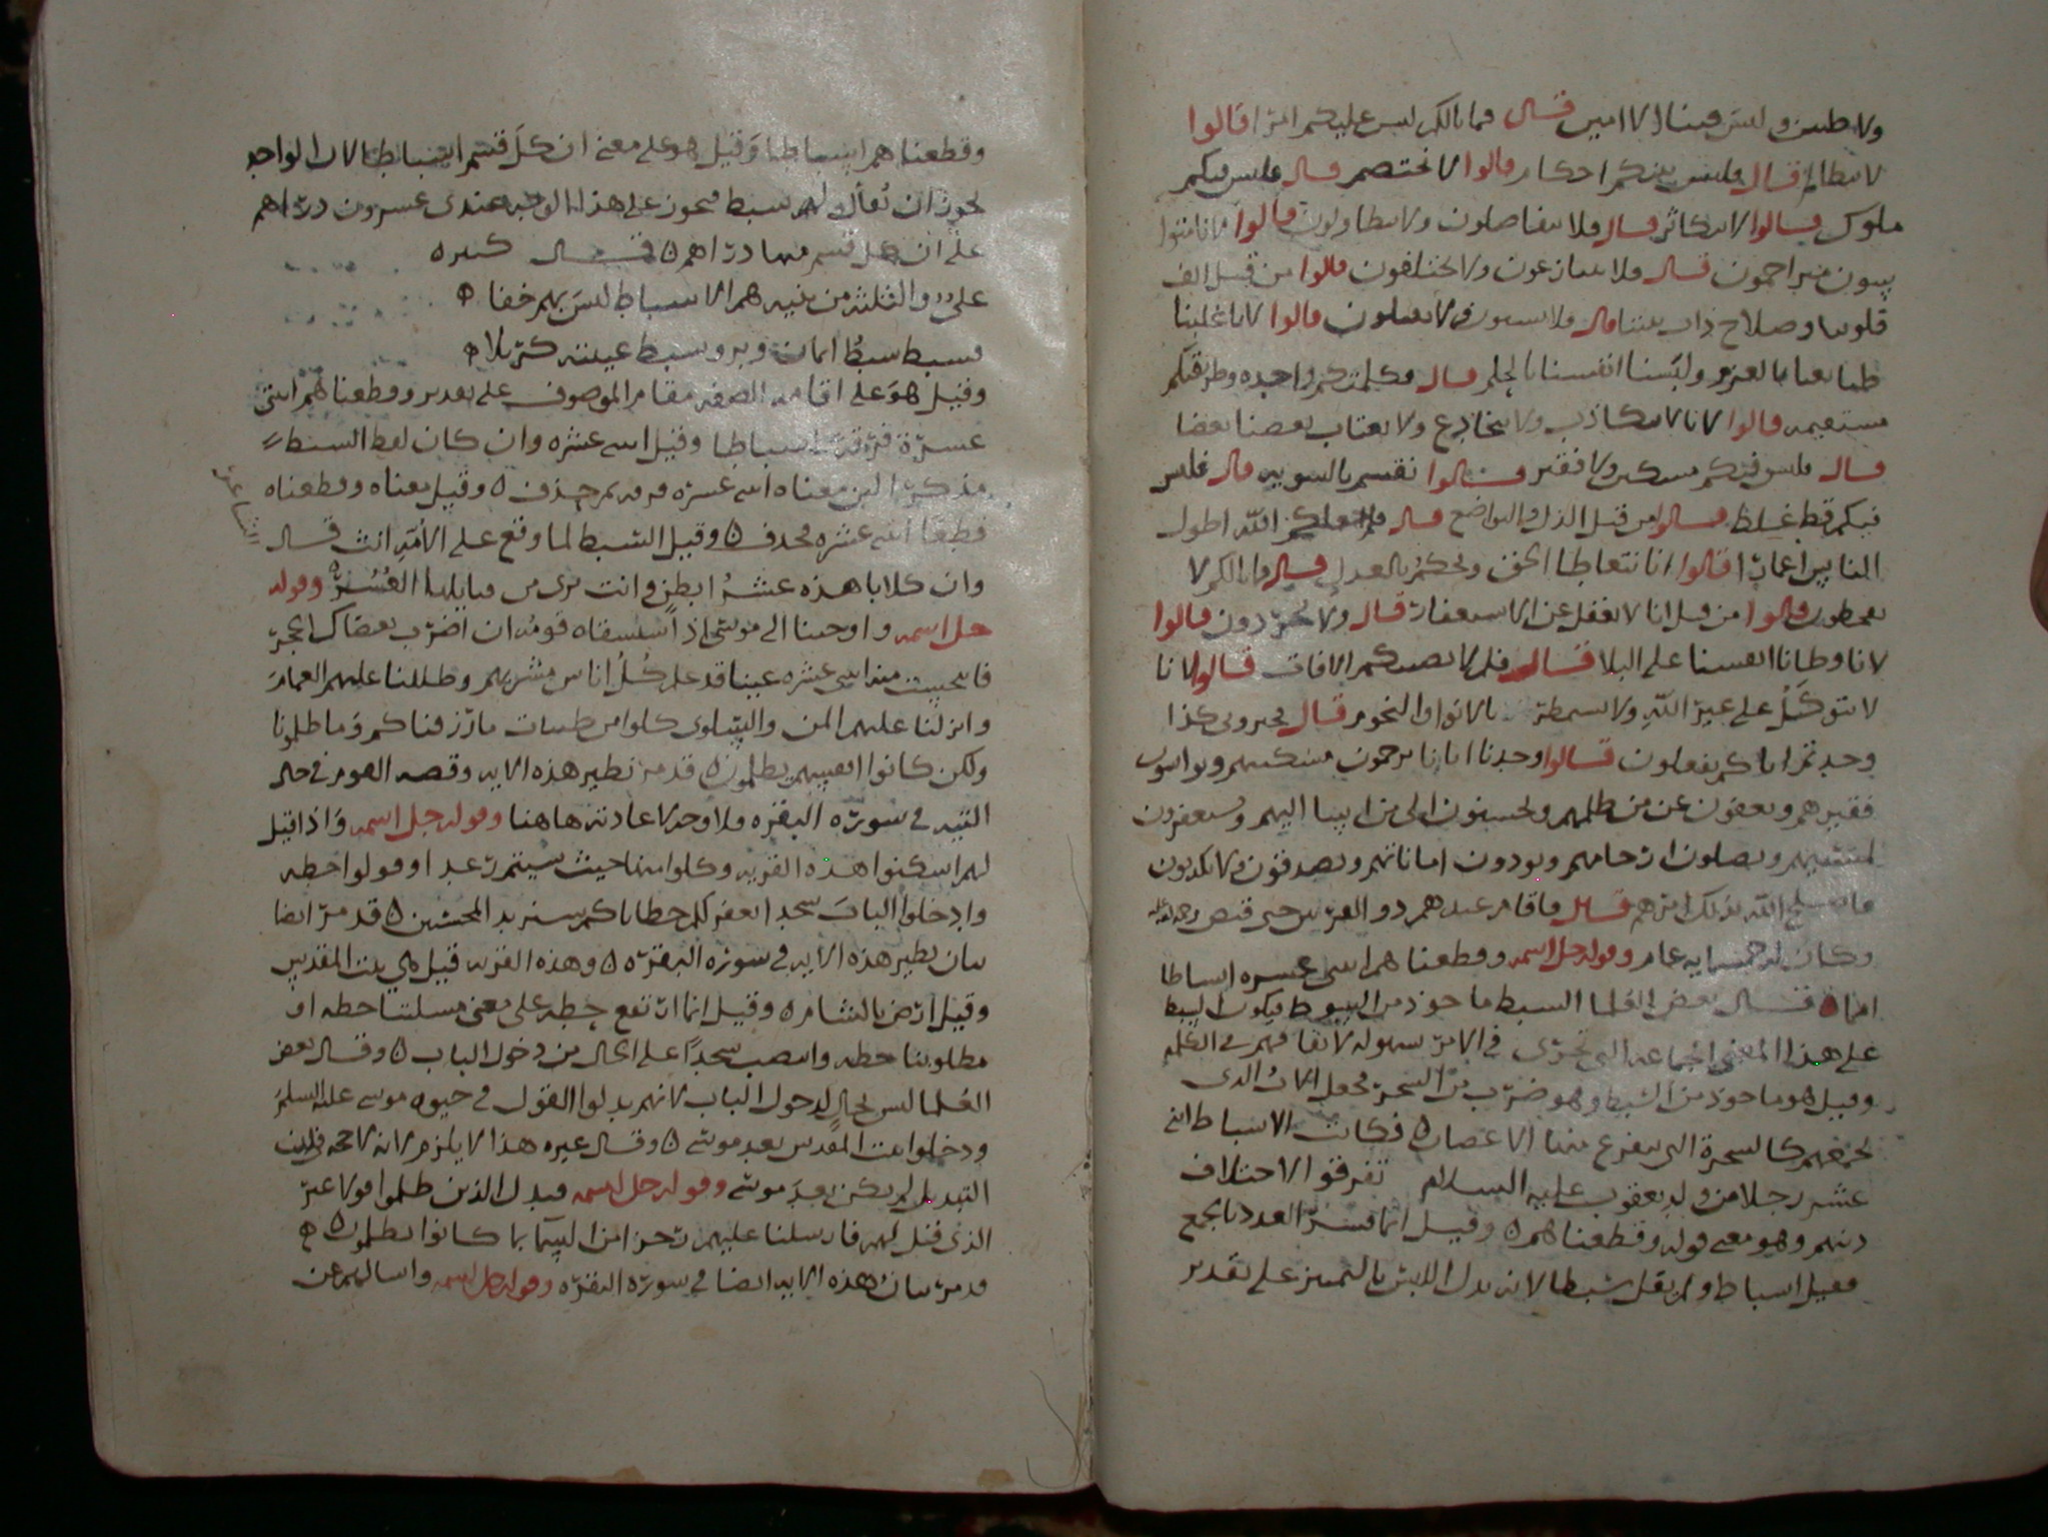 ولا ظنين وليس فينا الا امين قال فما بالكم ليس عليكم امرا قالوا
لا نتظالم قال فليس بينكم احكام قالوا لا نختصم قال فليس فيكم
ملوك قالوا لا نتكاثر قال فلا تتفاضلون ولا تتطاولون قالوا لانا متواسون
متراحمون قال فلا تتنازعون ولا تختلفون قالوا من قبل الف
قلوبنا وصلاح ذات بيننا قال فلا تستبون ولا تقتتلون قالوا لانا غلبنا
طبايعنا بالعزم ولبسنا انفسنا بالحلم قال فكلمتكم واحدة وطريقتكم
مستقيمة قالوا لانا لا نتكاذب ولا نتخادع ولا يغتاب بعضنا بعضا
قال فليس فيكم مسكين ولا فقير قالوا نقسم بالسويه قال فليس
فيكم فظ غليظ قالوا من قبل الذل والتواضع قال فلم جعلكم الله اطول
الناس اعمارا قالوا انا نتعاطا الحق ونحكم بالعدل قال فما بالكم لا
تقحطون قالوا من قبل انا لا نغفل عن الاستغفار قال ولا تحردون قالوا
لانا وطانا انفسنا على البلا قال فلم لا تصيبكم الافات قالوا لانا
لا نتوكل على غير الله ولا نستمطر بالانوا والنجوم قال خبروني كذا
وجدتم اباكم يفعلون قالوا وجدنا ابانا يرحمون مسكينهم ويواسون
فقيرهم ويعفون عن من ظلمهم ويحسنون الى من اسا اليهم ويستغفرون
لمسيهم ويصلون ارحامهم ويودون اماناتهم ويصدقون ولا يكذبون
فاصلح الله بذلك امرهم قال فاقام عندهم ذو القرنين حتى قبض رحمه الله
وكان له خمسمايه عام وقوله جل اسمه وقطعناهم اثنى عشره اسباطا
امما قال بعض العلما السبط ماخوذ من السبوط فيكون السبط
على هذا المعنى الجماعه التي تجرى في الامر بسهوله لاتفاقهم في الكلمه
وقيل هو ماخوذ من السبط وهو ضرب من الشجر فجعل الاب الذي
يجمعهم كالشجرة التي يتفرع منها الاغصان فكانت الاسباط اثنى
عشر رجلا من ولد يعقوب عليه السلام تفرقوا الاختلاف
دينهم وهو معنى قوله وقطعناهم وقيل انما فسر العدد بالجمع
فقيل اسباط ولم يقل سبطا لانه بدل ليس بالتمييز على تقدير
وقطعناهم اسباطا وقيل هو على معنى ان كل قسم اسباطا لان الواحد
يجوز ان يقال له سبط فيجوز على هذا الوجه عندى عشرون دراهم
على ان كل قسم منها دراهم قال كثيره
على والثلثه من بنيه هم الاسباط ليس بهم خفا
فسبط سبط ايمان وبر وسبط غيبته كربلا
وقيل هو على اقامه الصفه مقام الموصوف على تقدير وقطعناهم اثنتى
عشرة فرقة اسباطا وقيل اثنى عشره وان كان لفظ السبط
مذكرا لان معناه اثنى عشره فرقه ثم حذف وقيل معناه وقطعناه
قطعا اثنى عشره فحذف وقيل السبط لما وقع على الامة انث قال
وان كلابا هذه عشر ابطن وانت برى من قبايلها العشر وقوله
جل اسمه واوحينا الى موسى اذ استسقاه قومه ان اضرب بعصاك الحجر
فانبجست منه اثنى عشره عينا قد علم كل اناس مشربهم وظللنا عليهم الغمام
وانزلنا عليهم المن والسلوى كلوا من طيبات ما رزقناكم وما ظلمونا
ولكن كانوا انفسهم يظلمون قد مر نظير هذه الايه وقصه القوم في حال
التيه في سورة البقره فلا وجه لاعادته هاهنا وقوله جل اسمه واذ قيل
لهم اسكنوا هذه القريه وكلوا منها حيث شيتم رغدا وقولوا حطه
وادخلوا الباب سجدا نغفر لكم خطاياكم سنزيد المحسنين قد مر ايضا
بيان نظير هذه الايه في سورة البقرة وهذه القريه قيل هي بيت المقدس
وقيل ارض بالشام وقيل انما ارتفع حطه على معنى مسلتنا حطه او
مطلوبنا حطه وانتصب سجدا على الحال من دخول الباب وقال بعض
العلما ليس بحال لدخول الباب لانهم بدلوا القول في حيوه موسى عليه السلم
ودخلوا بيت المقدس بعد موسى وقال غيره هذا لا يلزم لانه لا حجه في ان
التبديل لم يكن بعد موسى وقوله جل اسمه فبدل الذين ظلموا قولا غير
الذى قيل لهم فارسلنا عليهم رجزا من السما بما كانوا يظلمون
قد مر بيان هذه الايه ايضا في سورة البقره وقوله جل اسمه واسالهم عن